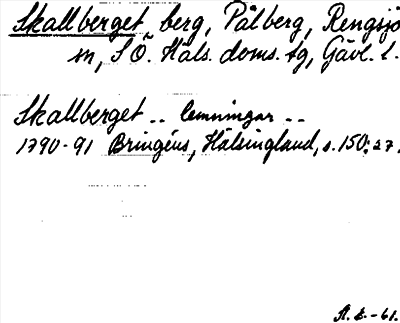 Skallberget berg, Pålberg, Rengsjö
sn, S Ö. Häls. doms. tg, Gävl. l.
Skallberget .. lemningar ..
1790-91 Bringéus, Hälsingland, s. 150:27.
-61.